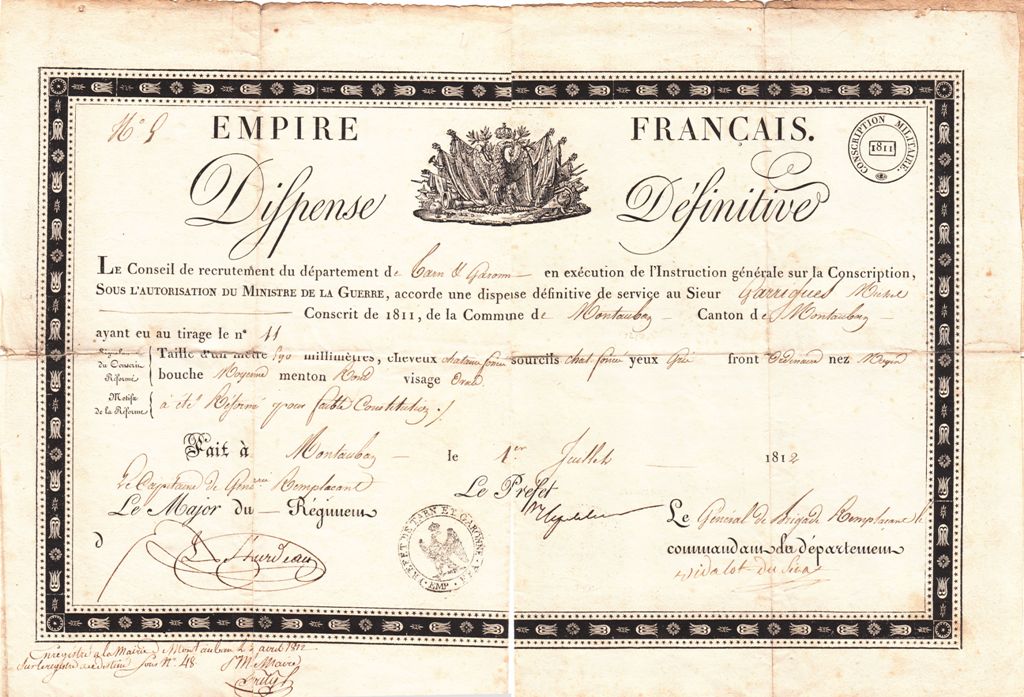 N° 5 EMPIRE FRANÇAIS.
CONSCRIPTION MILITAIRE.
1811
Dispense Définitive
LE Conseil de recrutement du département de Tarn & Garonne en exécution de l'Instruction générale sur la Conscription,
SOUS L'AUTORISATION DU MINISTRE DE LA GUERRE, accorde une dispense définitive de service au Sieur Garrigues Michel
Conscrit de 1811, de la Commune de Montauban Canton de Montauban
ayant eu au tirage le n° 11
Signalement du Conscrit Réformé
Taille d'un mètre 590 millimètres, cheveux chatains foncé sourcils chat. foncé yeux Gris front Ordinaire nez Moyen
bouche Moyenne menton Rond visage Ovale
Motifs de la Réforme
à été Réformé pour faible Constitution ./.
Fait à Montauban le 1er Juillet 1812
Le Capitaine de Remplaçant
Le Major du Régiment
Le Préfet
Le Général de Brigade Remplaçant le
d
commandant du département
PRÉFET DE TARN ET GARONNE. EMP. FRA.
Enregistré a la Mairie de Montauban le avril 1812
Sur le registre a ce destiné sous N°. 48
Maire